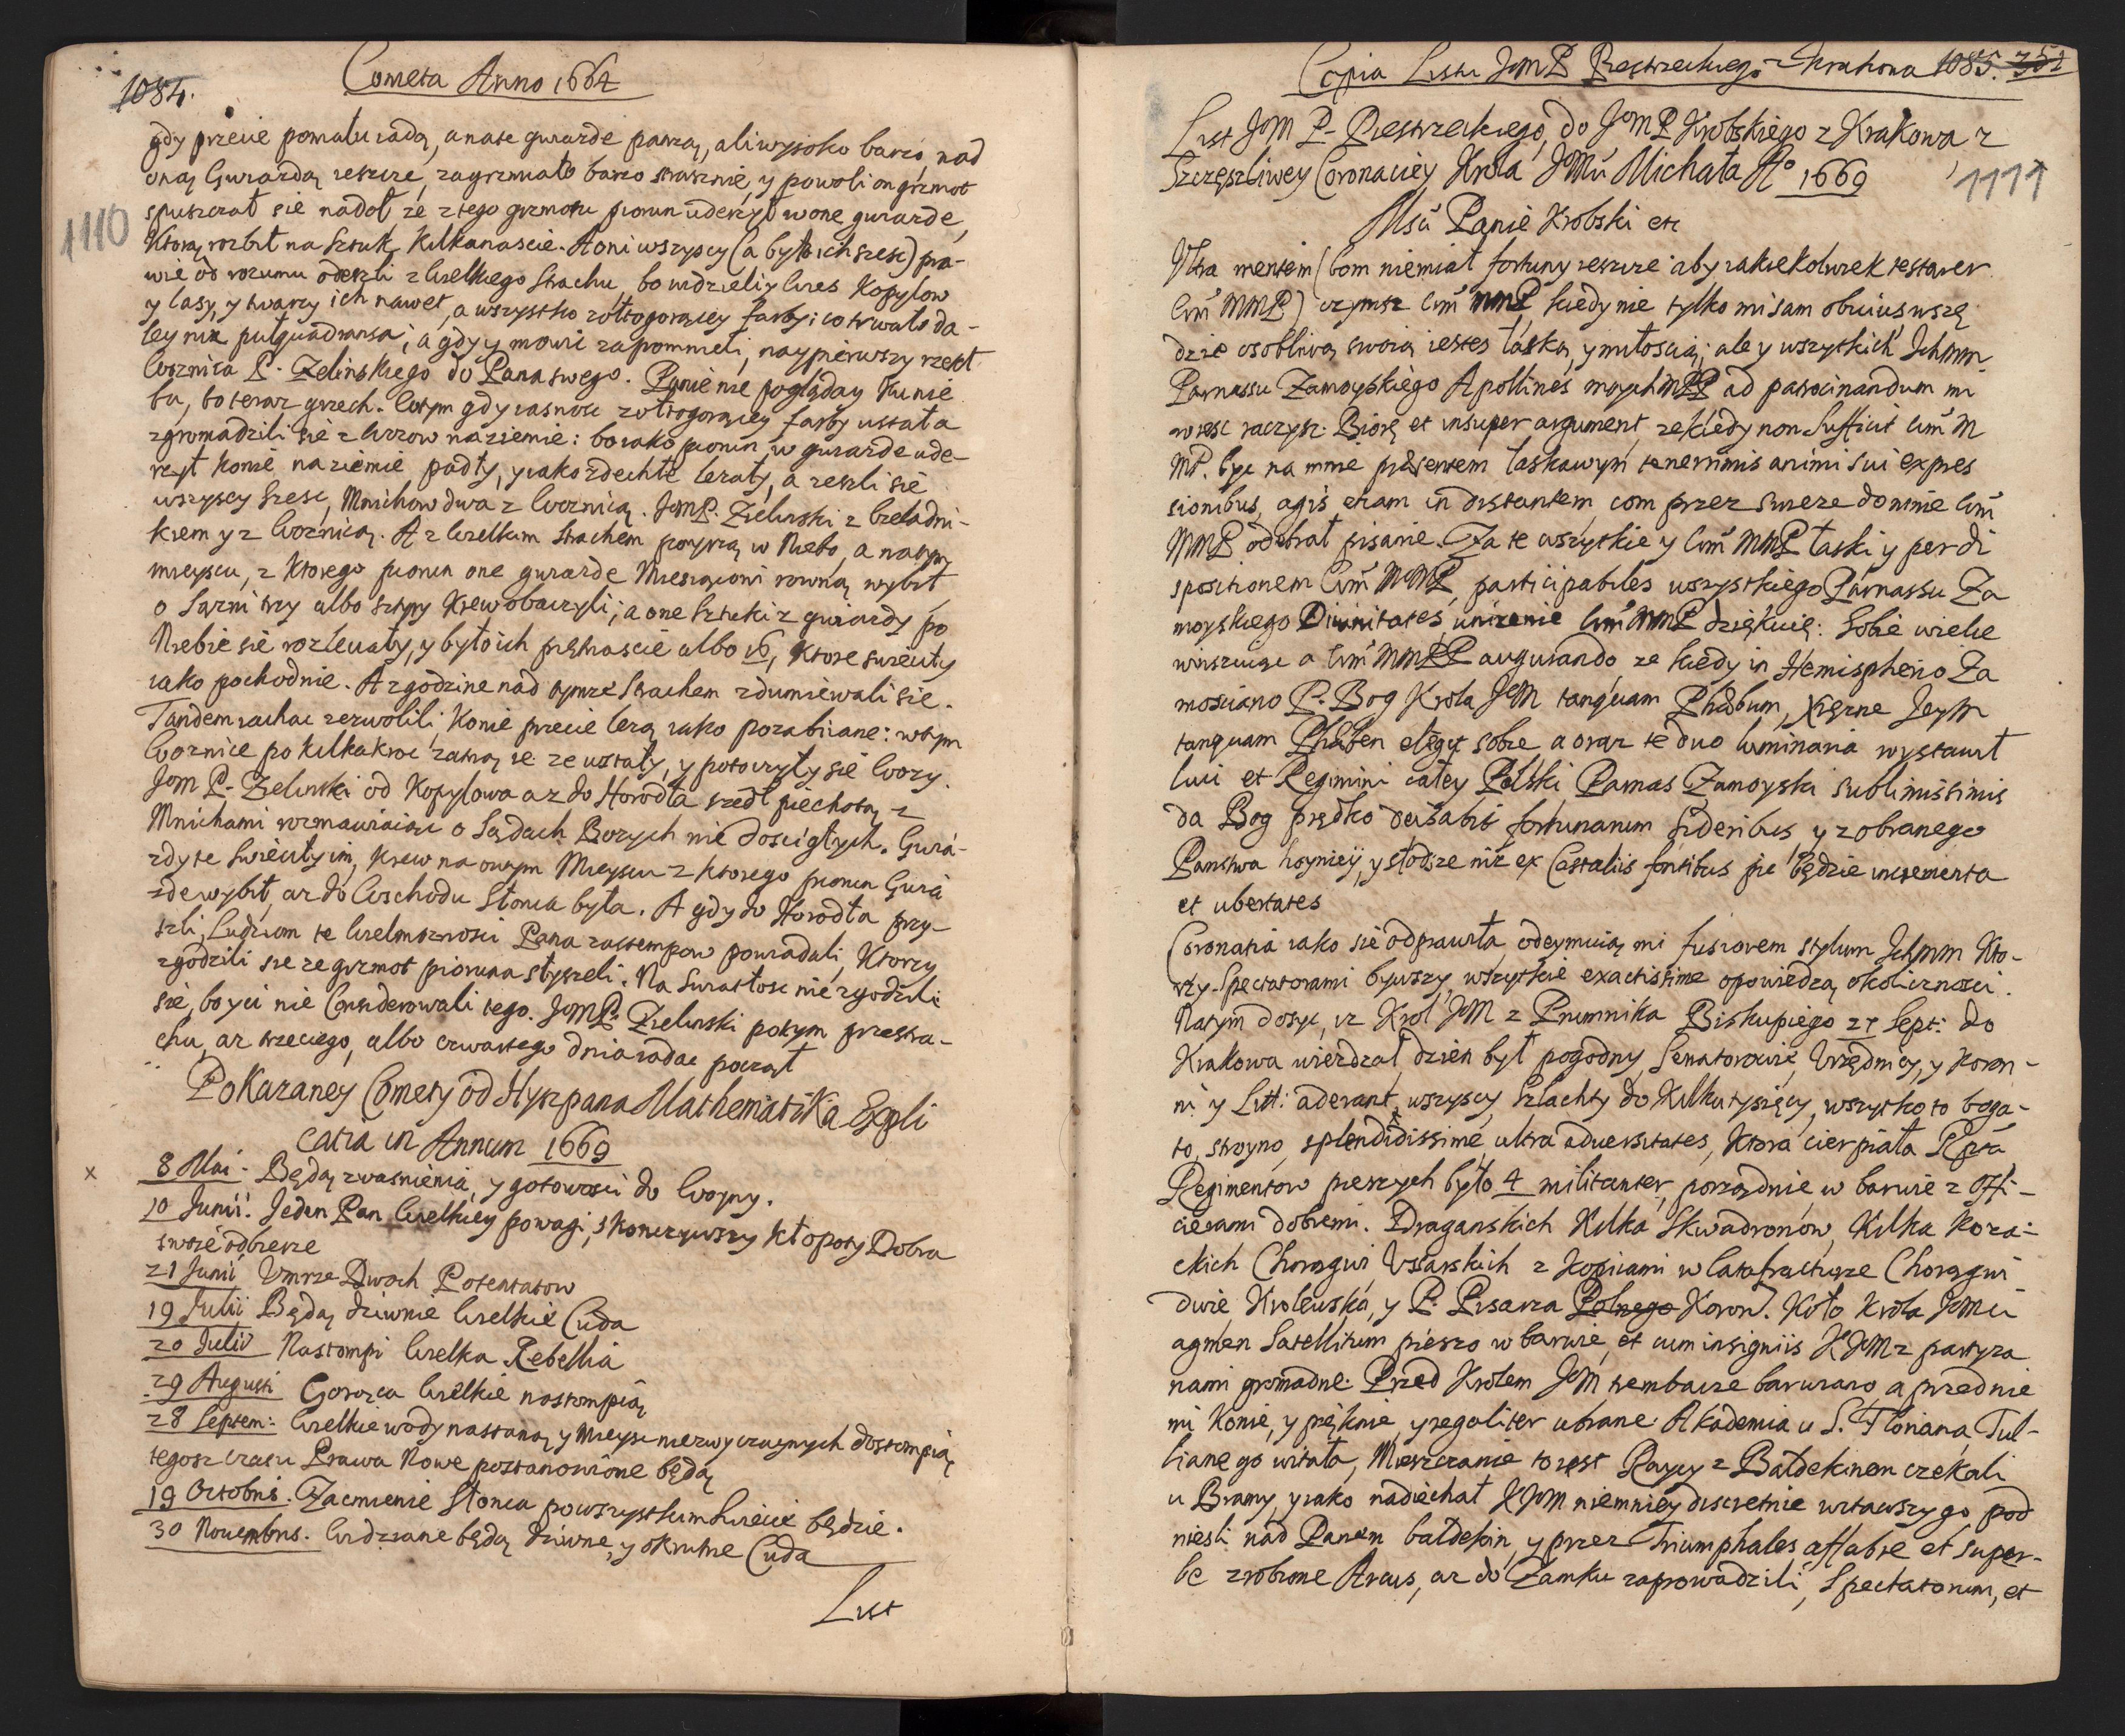 1084.
Cometa Anno 1664
1110
gdy przecie pomału iadą, a na te gwiazde patrzą, ali wysoko barzo, nad
oną Gwiazdą ieszcze, zagrzmiało barzo strasznie, y powoli on grzmot
spuszczał sie na doł, ze z tego grzmotu piorun uderzył w one gwiazde,
Ktorą rozbił na Sztuk Kilkanascie. A oni wszyscy (a było ich szesc) pra-
wie od rozumu odeszli z Wielkiego Strachu, bo widzieli y Wies Kopyłow
y lasy, y twarzy ich nawet, a wszystko żołtogorącey farby; co trwało da-
ley niz pułquadransa; a gdy y mowić zapomnieli, naypierwszy rzekł
Woznica P. Zelinskiego do Pana swego. Panie nie poglåday ku nie
bu, bo teraz grzech. Wtym gdy iasnosc zołtogorącey farby ustała
zgromadzili sie z Wozow na ziemie: bo iako piorun w gwiazde ude-
rzył konie na ziemie padły, y iako zdechłe leżały, a zeszli sie
wszyscy szesc, Mnichow dwa z Woznicą. JemP. Zielinski z Czeladni-
kiem y z Woznicą. A z Wielkim Strachem poyzrą w Niebo, a na tym
mieyscu, z Ktorego piorun one gwiazde Miesiącowi rowną wybił
o Sązni trzy albo sztyry Krew obaczyli; a one Sztuki z gwiazdy po
Niebie sie rozleciały, y było ich piętnascie albo 16, Ktore swieciły
iako pochodnie. A z godzine nad tymże Strachem zdumiewali sie.
Tandem iachac zezwolili, Konie przecie leżą iako pozabiiane: wtym
Woznice po kilkakroc zatną ie ze wstały, y potoczyły się Wozy.
Jem P. Zielinski od Kopyłowa az do Horodła szedł piechotą z
Mnichami rozmawiaiąc o Sądach Bozych nie dościgłych. Gwia-
zdy te swieciły im, Krew na owym Mieyscu z ktorego piorun Gwia
zde wybił, az do Wschodu Słonca była. A gdy do Horodła przy-
szli, Ludziom te Wielmoznosci Pana zastempow powiadali, Ktorzy
zgodzili sie ze grzmot pioruna słyszeli. Na Swiatłosc nie zgodzili
sie, bo yci nie Considerowali tego. JemP. Zielinski potym przestra-
chu, az trzeciego, albo czwartego dnia iadac począł
Pokazaney Comety od Hyszpana Mathematika Expli
catia in Annum 1669
x 8 Mai. Będą zwasnienia, y gotowosci do Woyny.
10 Junii. Jeden Pan Wielkiey powagi, skonczywszy kłopoty Dobra
swoie odbierze
21 Junii Umrze Dwoch Potentatow
19 Julii Będą dziwnie Wielkie Cuda
20 Julii Nastompi Wielka Rebellia
29 Augusti Gorąca Wielkie nastompią
28 Septem: Wielkie wody nastaną, y Mieysc niezwyczaynych dostompią
tegosz czasu Prawa Nowe postanowione będą
19 Octobris. Zacmienie Słonca powszystkim Swiecie będzie.
30 Novembris. Widziane będą dziwne, y okrutne Cuda
List
Copia Listu JemP Piestrzeckiego z Krakowa 1085. 352
1111
List JeM P. Piestrzeckiego, do JemP Krobskiego z Krakowa z
Szczęszliwey Coronaciey Krola JeMci Michała Ao 1669
Msci Panie Krobski etc
Ultra mentem (bom niemiał fortuny ieszcze aby iakiekolwiek testarer
Wm MMP) czynisz Wm MMP kiedy nie tylko mi sam obicius wszę
dzie osobliwą swoią iestes łaską, y miłoscią; ale y wszytkich Ichmm
Parnassu Zamoyskiego Apollines moych MPP ad patrocinandum mi
wiesc raczysz. Biorę et insuper argument, ze kiedy non Sufficit Wm M
MP. byc na mnie præsentem łaskawym tenerrimis animi sui expres
sionibus, agis etiam in distantem com przez swieze do mnie Wm
MMP odebrał pisanie. Za te wszytkie y Wm MMP łaski y per di
spositionem Wm MMP, participabiles wszystkiego Parnassu Za
moyskiego Divinitates, unizenie Wm MMP dziękuię: Sobie wielce
winszuiąc a Wm MMPP augurando ze kiedy in Hemispherio Za
mosciano P. Bog Krola JeM tanquam Phœbum, Xięzne JeyM
tanquam Phæben elegit sobie a oraz te duo luminaria wystawił
luci et Regimini całey Polski Parnas Zamoyski sublimissimis
da Bog prędko dealabit fortunarum sideribus, y zobranego
Panstwa hoyniey, y słodsze niz ex Castaliis fontibus pic będzie incrementa
et ubertates
Coronatia iako sie odprawiła, odeymuią mi fusiorem stylum Ichmm Kto-
rzy Spectatorami bywszy, wszytkie exactissime opowiedzą okolicznosci.
Natym dosyc, iz Krol JeM z Prumnika Biskupiego 27 Sept: do
Krakowa wiezdzał, dzien był pogodny, Senatorowie, Urzędnicy, y Koron-
ni y Litt: aderant, wszyscy, szlachty do Kilku tysięcy, wszytko to boga-
to, stroyno, splendidissime, ultra adversitates, Ktora cierpiała Rpta
Regimentow pieszych było 4 militanter, porządnie w barwie z Offi-
cierami dobremi. Draganskich Kilka Skwadronow, Kilka Koza-
ckich Chorągwi, Ussarskich z Kopiami w Catafracturze Chorągwi
dwie Krolewska, y P. Pisarza Polnego Koron. Koło Krola JeMci
agmen Satellitum pieszo w barwie, et cum insigniis KJM z partyza
nami gromadne. Przed Krolem JeM trembacze barwiano, a przednie
mi Konie, y pięknie, y regaliter ubrane. Akademia u S. Floriana, Tul-
liane go witała, Mieszczanie to iest Raycy z Baldekinem czekali
u Bramy, y iako nadiechał KJM niemniey discretnie witawszy go pod
niesli nad Panem baldekin, y przez Triumphales affabre et super-
be zrobione Arcus, az do Zamku zaprowadzili, Spectatorum, et